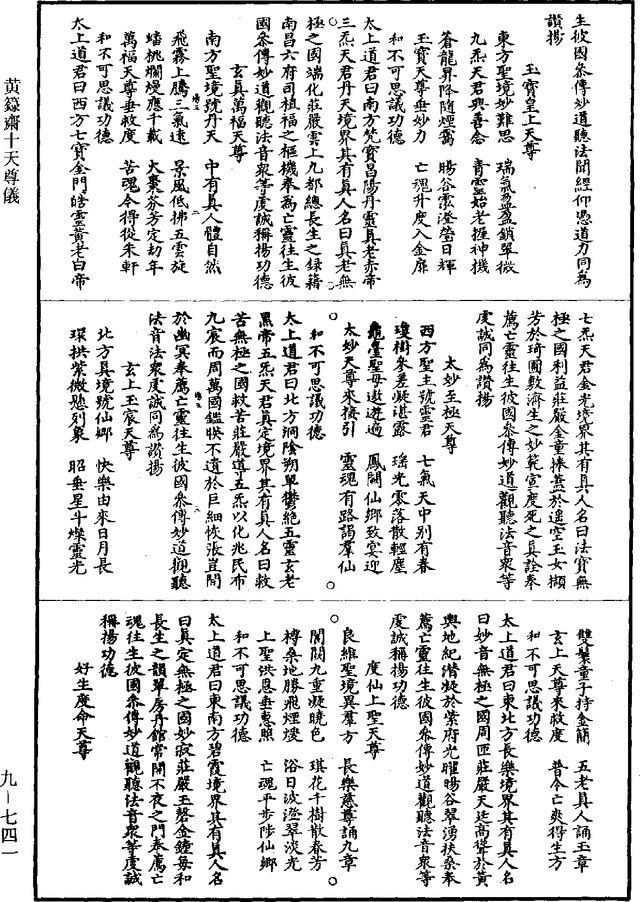 生彼國參傳妙道聽法聞經仰憑道力同為
讚揚
玉寶皇上天尊
東方聖境妙難思　瑞氣盈盈鎖翠微
九炁天君興善念　青靈始老握神機
蒼龍昇降隨煙靄　暘谷霑澄瑩日輝
玉寶天尊垂妙力　亡魂升度入金扉
和不可思議功德
太上道君曰南方梵寶昌陽丹靈真老赤帝
三炁天君丹天境界其有真人名曰真老無
極之國端化莊嚴雲上九都總長生之錄籍
南昌六府司植福之樞機奉為亡靈往生彼
國參傳妙道觀聽法音眾等虔誠稱揚功德
玄真萬福天尊
南方聖境號丹天　中有真人體自然
飛霧上騰三氣遠　景風低拂五雲旋
蟠桃爛熳應千載　大棗芬芳定劫年
萬福天尊垂救度　苦魂令得從朱軒
和不可思議功德
太上道君曰西方七寶金門皓靈黃老白帝
七炁天君金光境界其有真人名曰法寶無
極之國利益莊嚴金童捧蓋於遥空玉女擷
芳於琦圃敷濟生之妙範宣度死之真詮奉
薦亡靈往生彼國參傳妙道觀聽法音眾等
虔誠同為讚揚
太妙至極天尊
西方聖主號靈君　七氣天中別有春
瓊樹參差凝湛露　瑤光零落散輕塵
龜臺聖母遨遊過　鳳闕仙鄉致宴迎
太妙天尊來接引　靈魂有路謁羣仙
和不可思議功德
太上道君曰北方洞陰朔單鬱絕五靈玄老
黑帝五炁天君真定境界其有真人名曰救
苦無極之國救苦莊嚴道五炁以化兆民布
九宸而周萬國鑑映不遺於巨細恢張豈間
於幽冥奉薦亡靈往生彼國參傳妙道觀聽
法音法眾虔誠同為讚揚
玄上玉宸天尊
北方真境號仙鄉　快樂由來日月長
環拱紫微懸列象　昭垂星斗燦靈光
雙鬟童子持金簡　五老真人誦玉章
玄上天尊來救度　普令亡爽得生方
和不可思議功德
太上道君曰東北方長樂境界其有真人名
曰妙音無極之國周匝莊嚴天廷高聳於黃
輿地紀潛凝於紫府光曜暘谷翠湧扶桑奉
薦亡靈往生彼國參傳妙道觀聽法音眾等
虔誠稱揚功德
度仙上聖天尊
良維聖境異羣方　長樂慈尊誦九章
閬闕九重凝曉色　琪花千樹散春芳
榑桑地勝飛煙煖　浴日波澄翠淡光
上聖洪恩垂惠照　亡魂平步陟仙鄉
和不可思議功德
太上道君曰東南方碧霞境界其有真人名
曰真定無極之國妙寂莊嚴玉磬金鐘每和
長生之韻翠房丹館常開不夜之門奉薦亡
魂往生彼國參傳妙道觀聽法音眾等虔誠
稱揚功德
好生度命天尊
黃籙齋十天尊儀
九—七四一